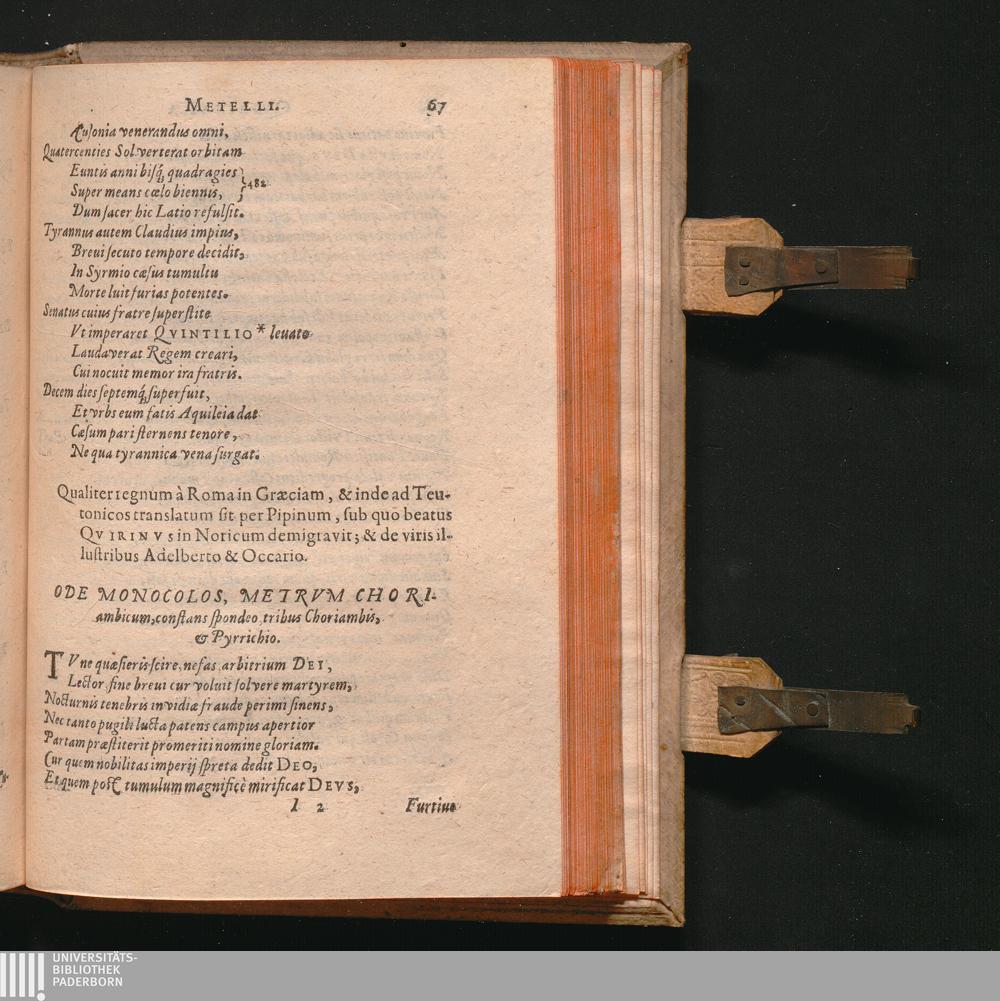 METELLI. 67
Ausonia venerandus omni,
Quatercenties Sol verterat orbitam
Euntis anni bisq́; quadragies
Super means cœlo biennis, } 482
Dum sacer hic Latio refulsit.
Tyrannus autem Claudius impius,
Brevi secuto tempore decidit,
In Syrmio cæsus tumultu
Morte luit furias potentes.
Senatus cuius fratre superstite
Vt imperaret QVINTILIO* levato
Laudaverat Regem creari,
Cui nocuit memor ira fratris.
Decem dies septemq́; superfuit,
Et vrbs eum fatis Aquileia dat
Cæsum pari sternens tenore,
Ne qua tyrannica vena surgat.
Qualiter regnum à Roma in Græciam, & inde ad Teu-
tonicos translatum sit per Pipinum, sub quō beatus
QVIRINVS in Noricum demigravit; & de viris il-
lustribus Adelberto & Occario.
ODE MONOCOLOS, METRVM CHORI-
ambicum, constans spondeo, tribus Choriambis,
& Pyrrichio.
TVne quæsieris scire, nefas, arbitrium DEI,
Lector, sine brevi cur voluit solvere martyrem,
Nocturnis tenebris invidiæ fraude perimi sinens,
Nec tanto pugili lucta patens campus apertior
Partam præstiterit promeriti nomine gloriam.
Cur quem nobilitas imperij spreta dedit DEO,
Et quem post tumulum magnificè mirificat DEVS,
l 2 Furtiue
UNIVERSITÄTS-
BIBLIOTHEK
PADERBORN